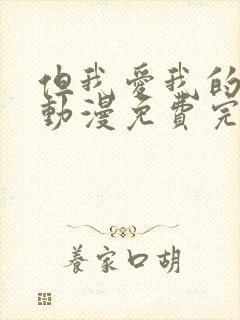 但我爱我的
動漫免費完
養家口胡